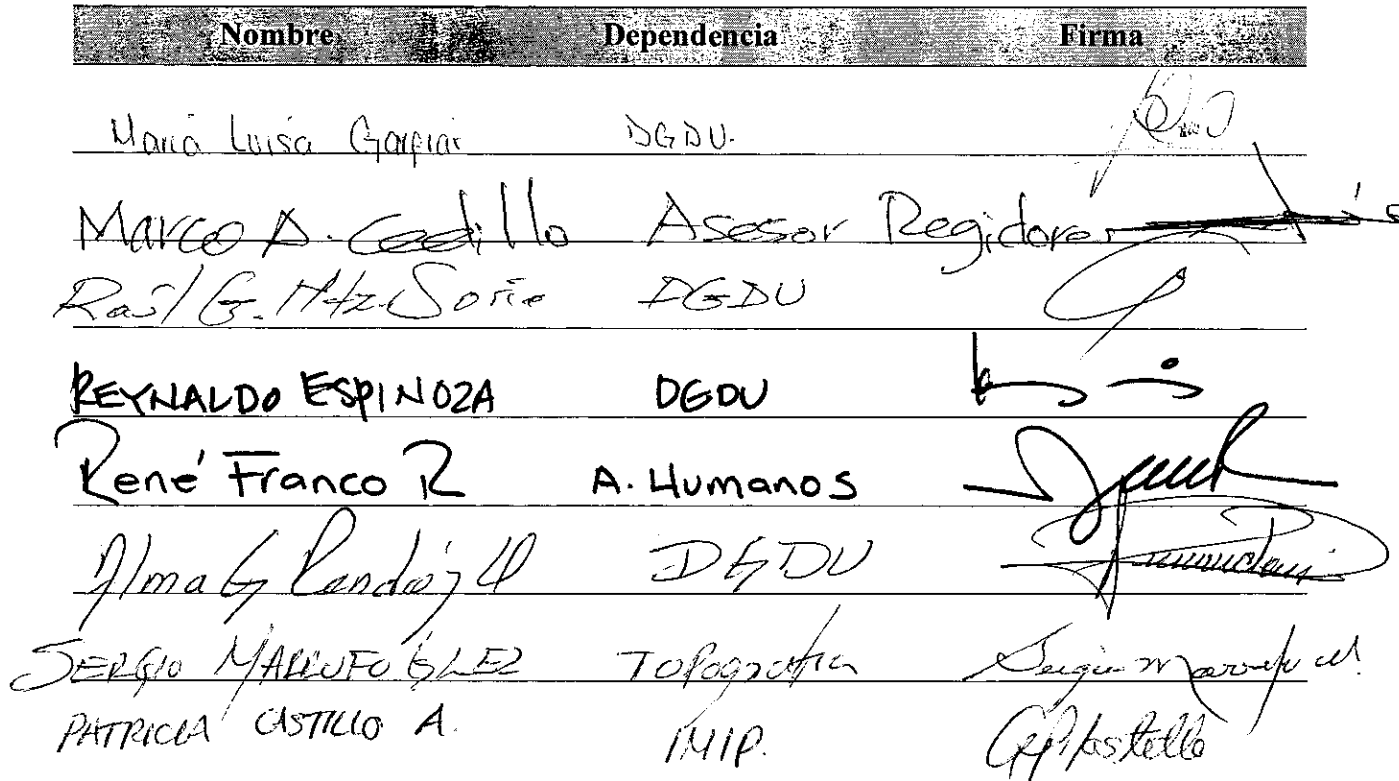 Nombre Dependencia Firma
María Luisa DGDU.
Marco A. Cedillo Asesor Regidores
Raúl G. Mtz. Soria DGDU
REYNALDO ESPINOZA DGDU
René Franco R A. Humanos
Alma G DGDU
SERGIO MARRUFO GLEZ Topografia
PATRICIA CASTILLO A. IMIP.